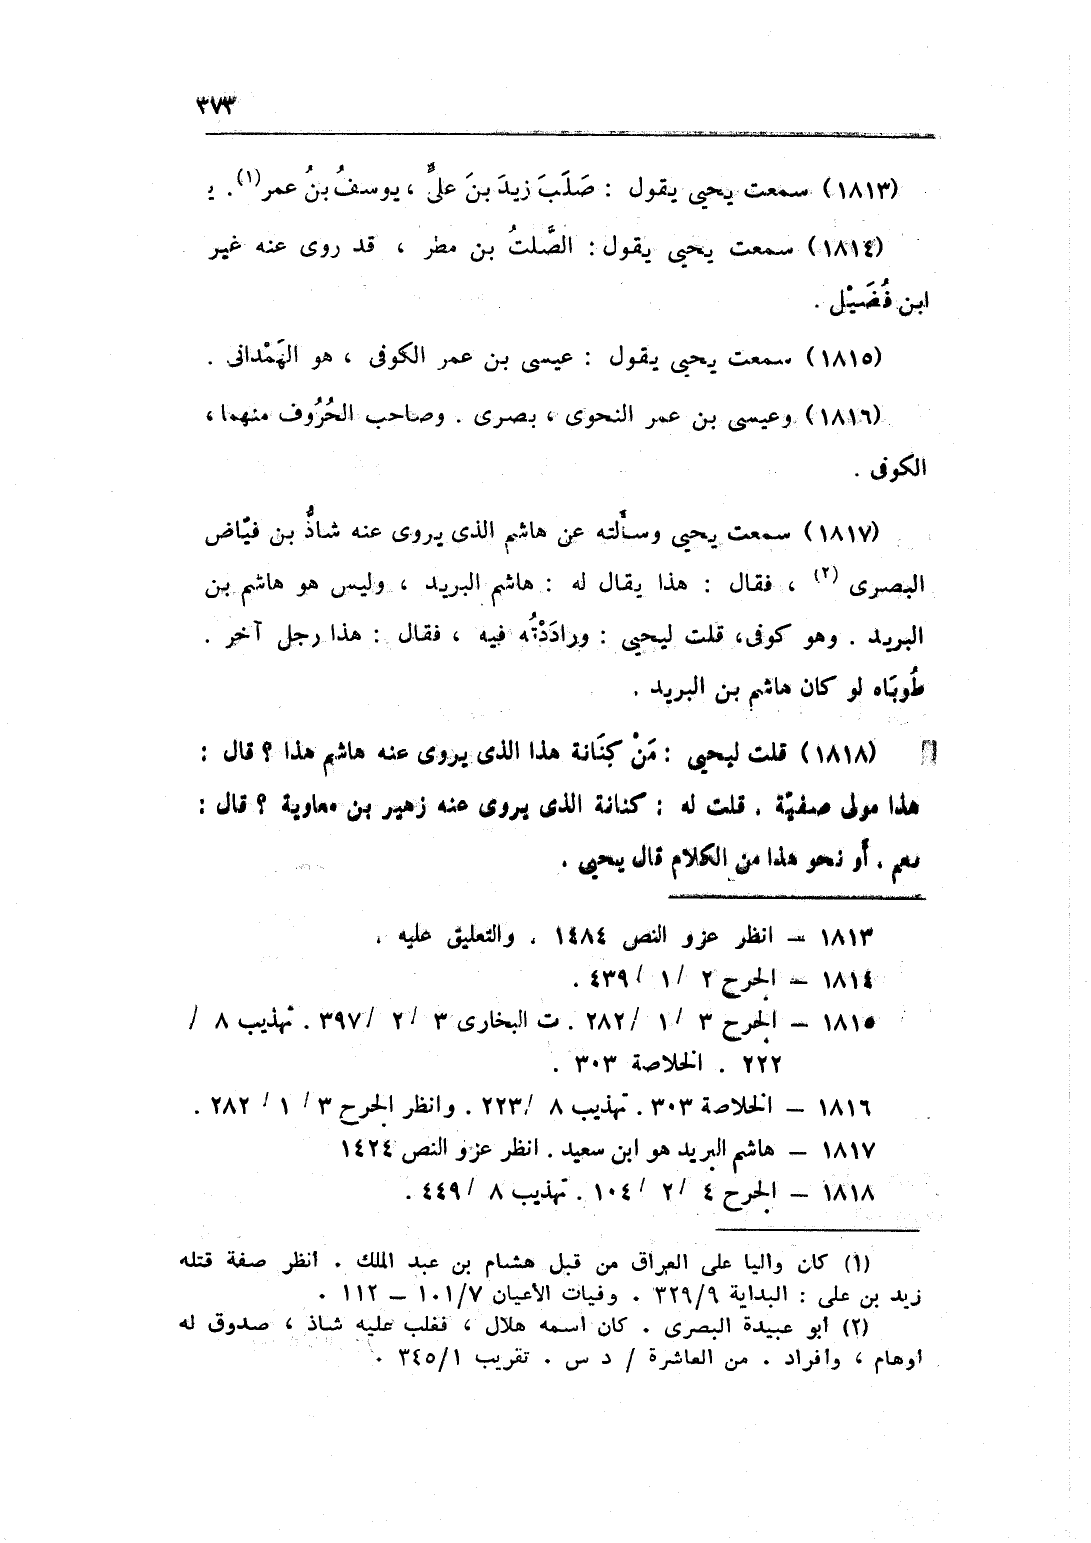 ٣٧٣
(١٨١٣) سمعت يحيى يقول : صَلَبَ زيدَ بنَ علىٍّ ، يوسفُ بنُ عمر(١).
(١٨١٤) سمعت يحيى يقول : الصَّلتُ بن مطر ، قد روى عنه غير
ابن فُضَيْل .
(١٨١٥) سمعت يحيى يقول : عيسى بن عمر الكوفى ، هو الهَمْدانى .
(١٨١٦) وعيسى بن عمر النحوى ، بصرى . وصاحب الحُرُوف منهما ،
الكوفى .
(١٨١٧) سمعت يحيى وسألته عن هاشم الذى يروى عنه شاذُّ بن فيّاض
البصرى (٢) ، فقال : هذا يقال له : هاشم البريد ، وليس هو هاشم بن
البريد . وهو كوفى، قلت ليحيى : ورادَدْتُه فيه ، فقال : هذا رجل آخر .
طُوبَاه لو كان هاشم بن البريد .
(١٨١٨) قلت ليحيى : مَنْ كِنَانة هذا الذى يروى عنه هاشم هذا ؟ قال :
هذا مولى صفيّة . قلت له : كنانة الذى يروى عنه زهير بن معاوية ؟ قال :
نعم . أو نحو هذا من الكلام قال يحيى .
١٨١٣ – انظر عزو النص ١٤٨٤ . والتعليق عليه .
١٨١٤ – الجرح ٢ /١ /٤٣٩ .
١٨١٥ – الجرح ٣ /١ /٢٨٢ . ت البخارى ٣ /٢ /٣٩٧ . تهذيب ٨ /
٢٢٢ . الخلاصة ٣٠٣ .
١٨١٦ – الخلاصة ٣٠٣ . تهذيب ٨ /٢٢٣ . وانظر الجرح ٣ /١ /٢٨٢ .
١٨١٧ – هاشم البريد هو ابن سعيد . انظر عزو النص ١٤٢٤
١٨١٨ – الجرح ٤ /٢ /١٠٤ . تهذيب ٨ /٤٤٩ .
(١) كان واليا على العراق من قبل هشام بن عبد الملك . انظر صفة قتله
زيد بن على : البداية ٣٢٩/٩ . وفيات الأعيان ١٠١/٧ – ١١٢ .
(٢) أبو عبيدة البصرى . كان اسمه هلال ، فغلب عليه شاذ ، صدوق له
أوهام ، وأفراد . من العاشرة / د س . تقريب ٣٤٥/١ .